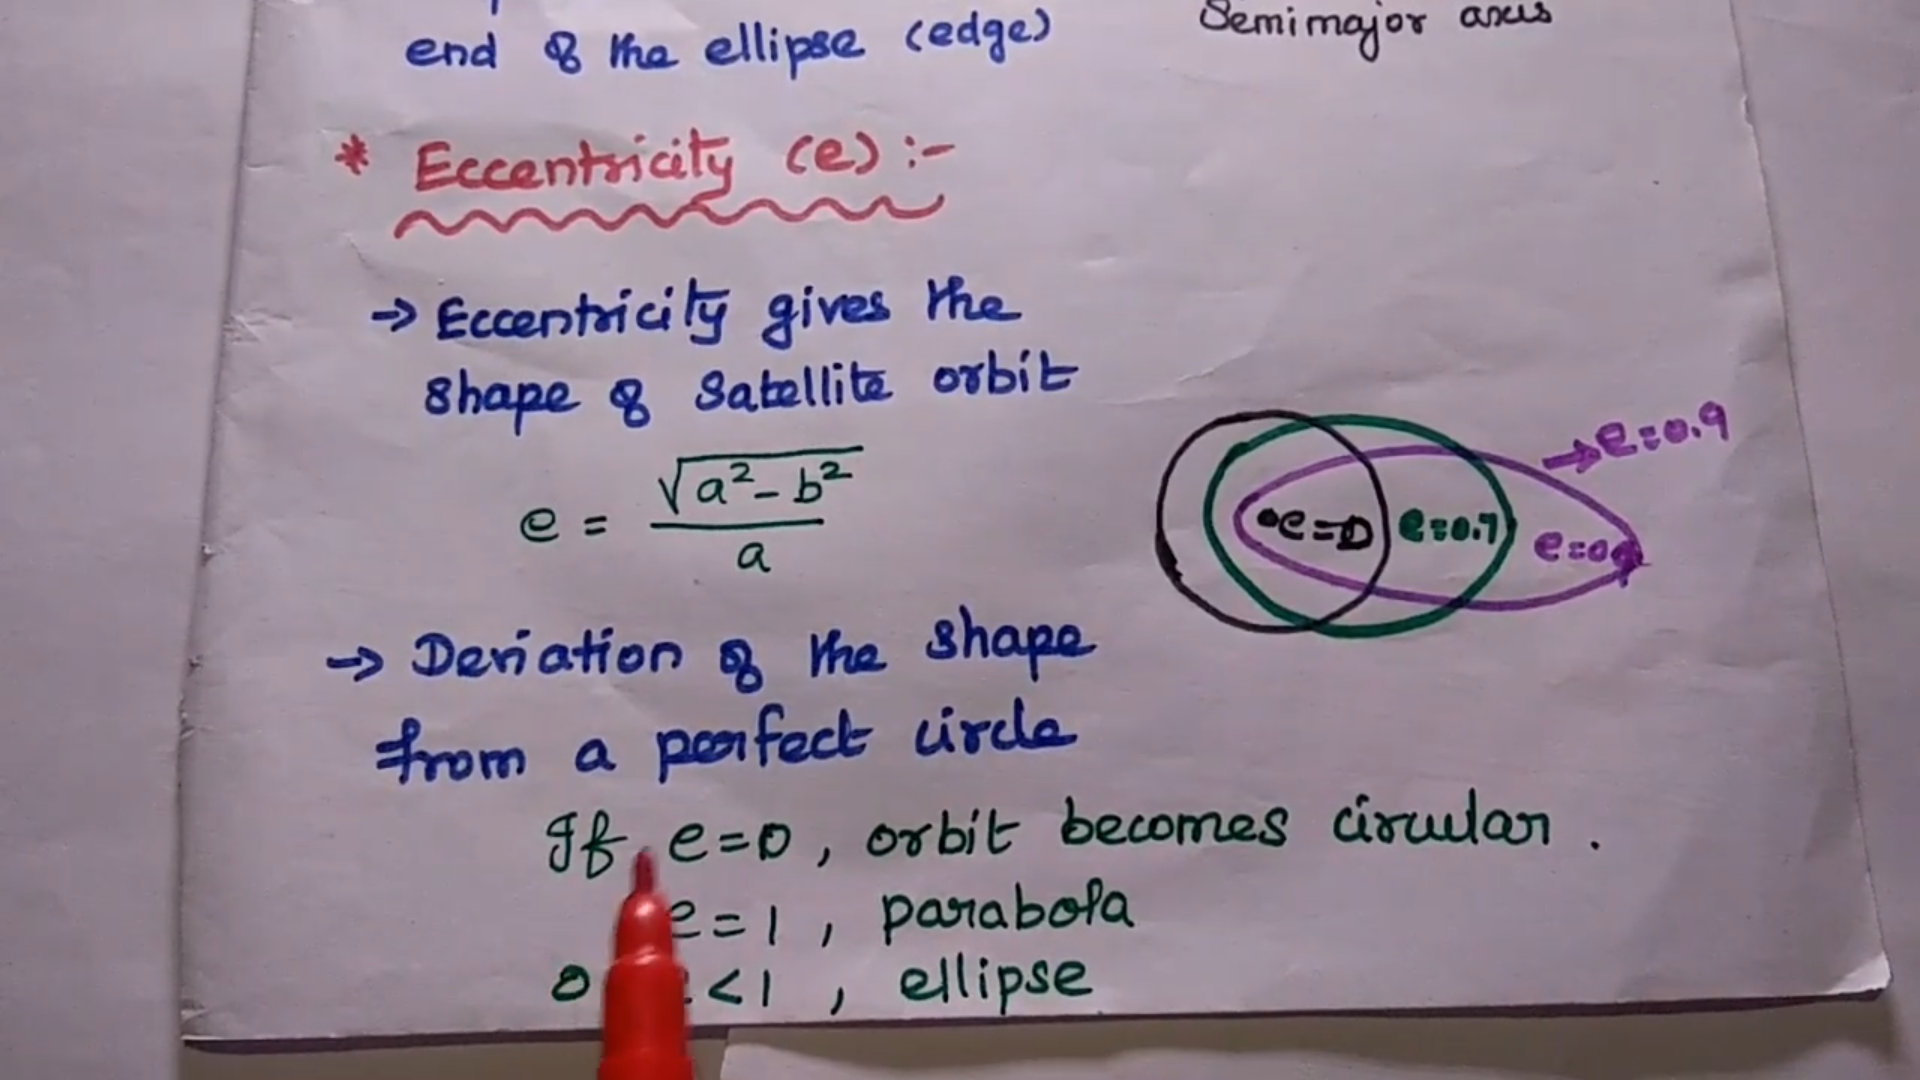 end of the ellipse (edge)
Semimajor axis
* Eccentricity (e) :-
→ Eccentricity gives the
shape of satellite orbit
e = √a² - b² / a
→ e=0.9
e=0
e=0.7
→ Deviation of the shape
from a perfect circle
If e=0, orbit becomes circular.
e=1, parabola
0 <1, ellipse